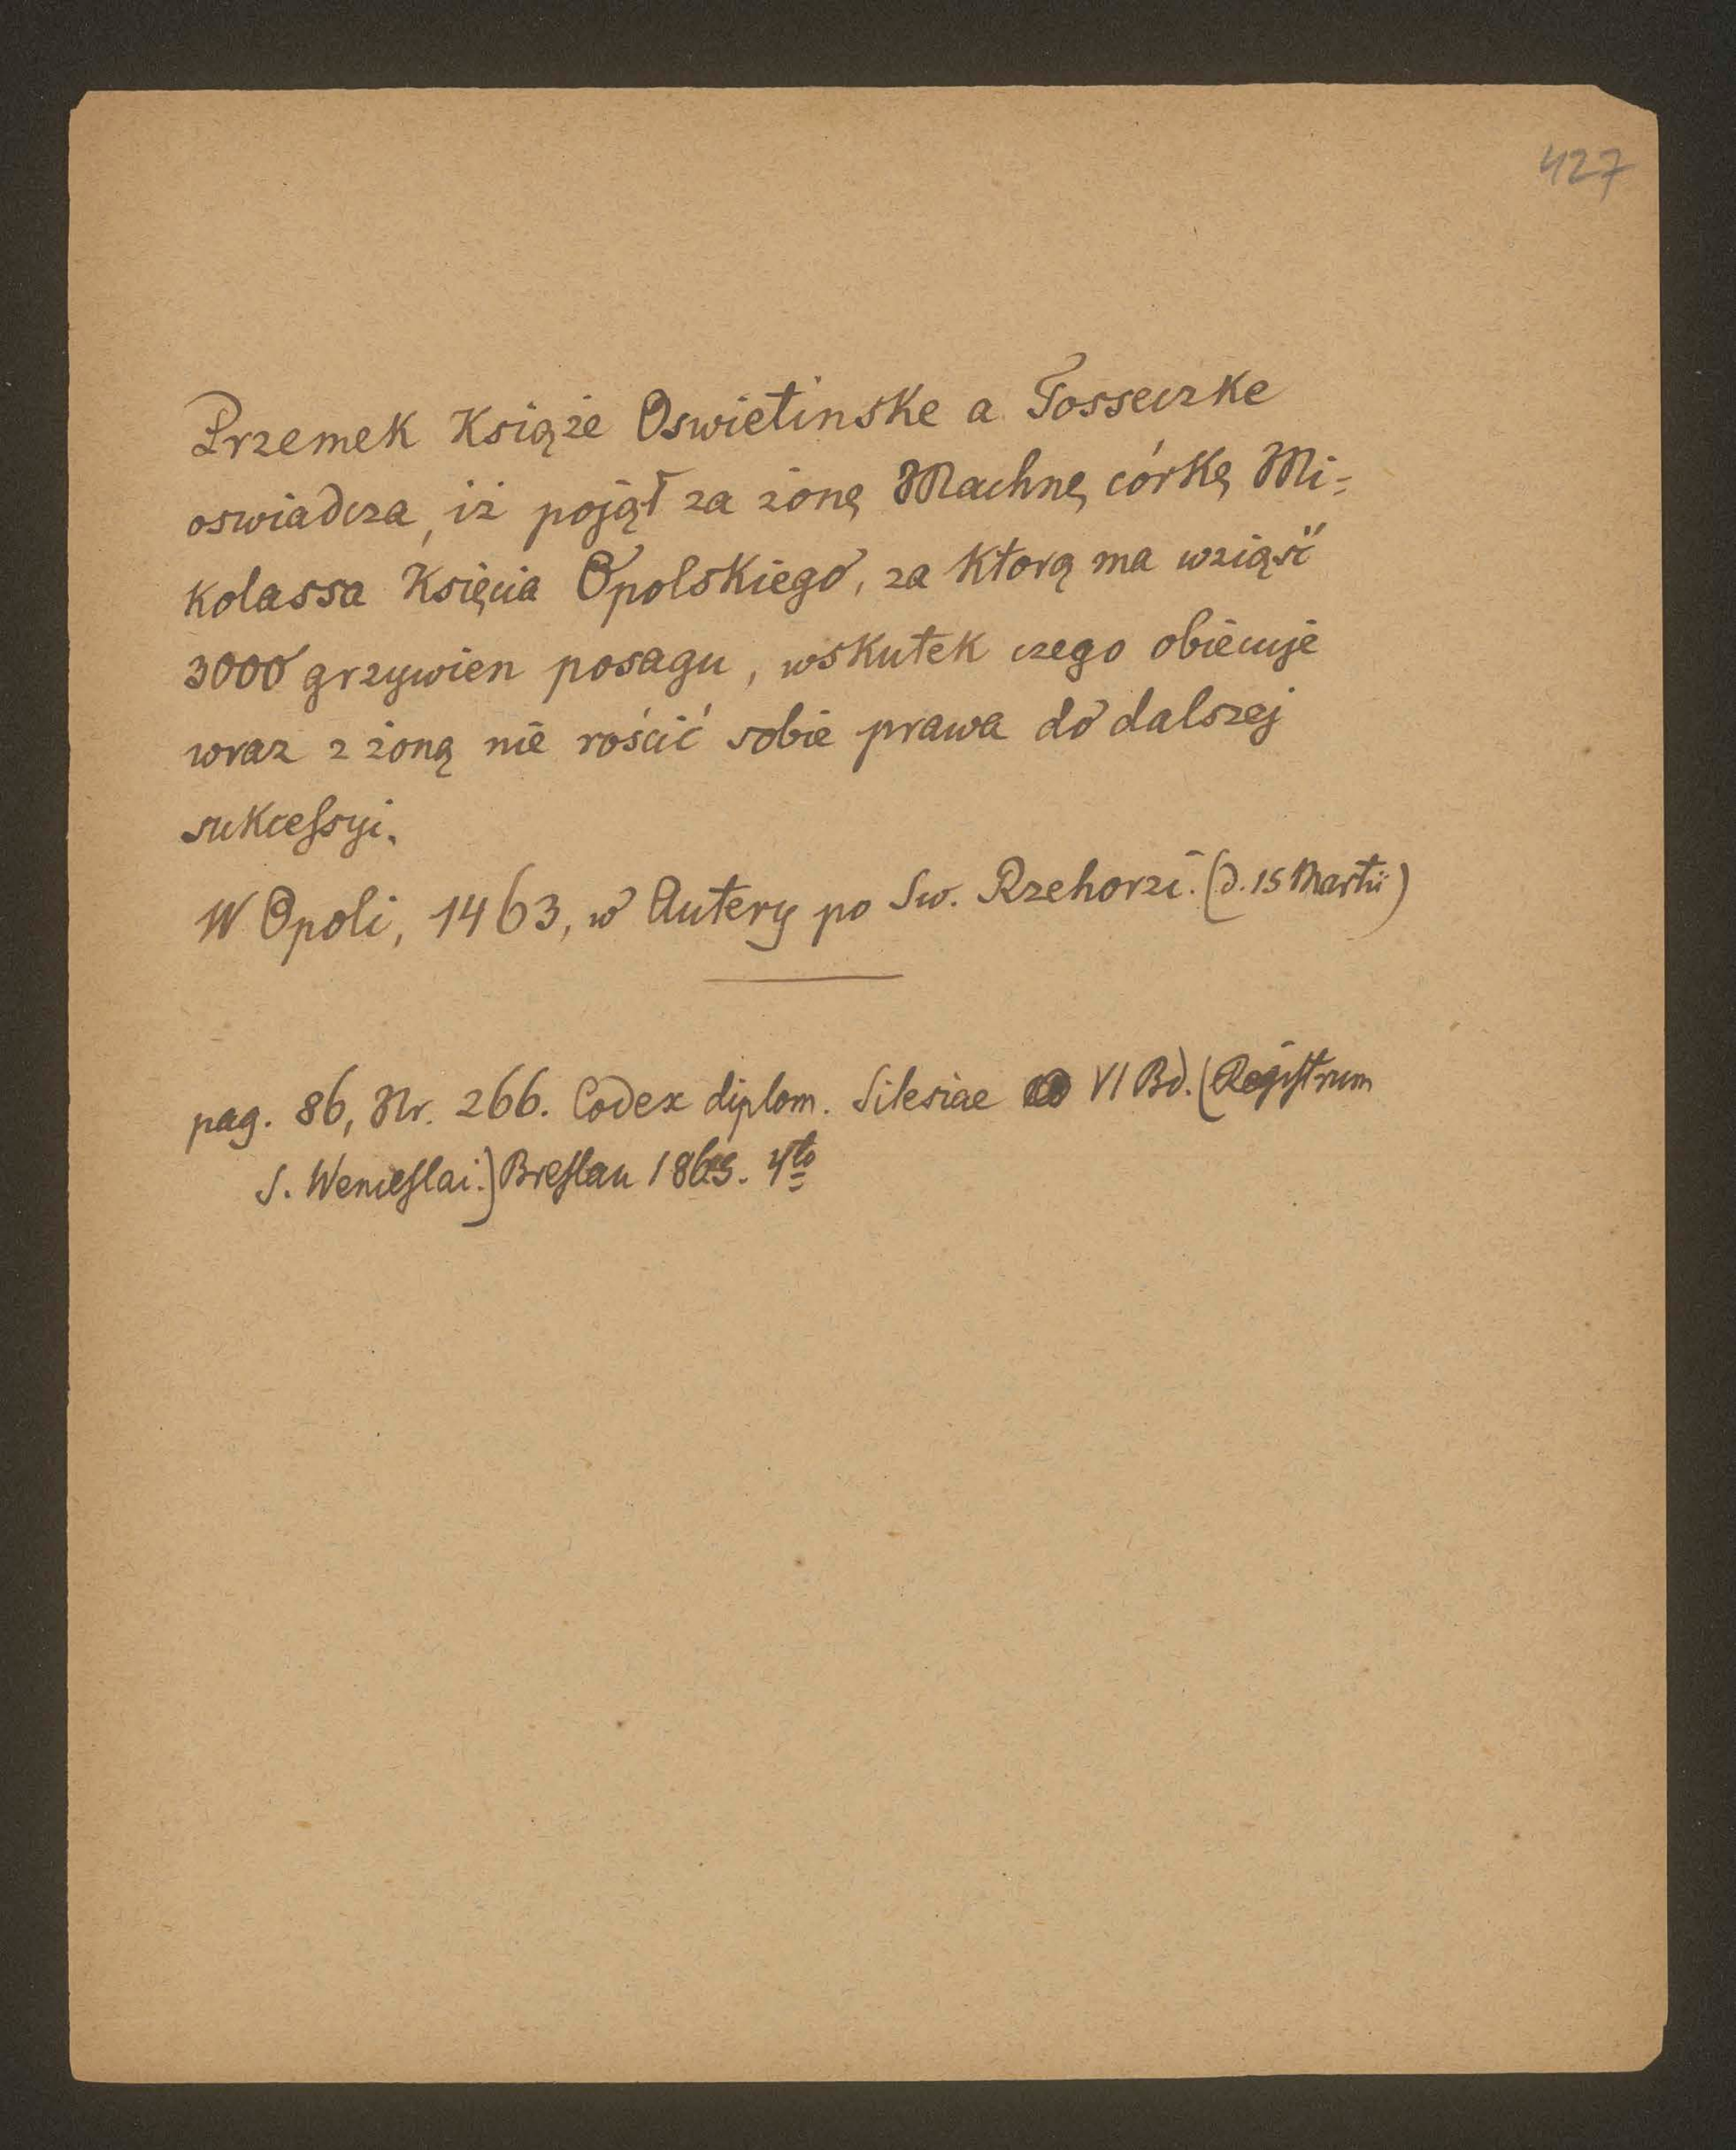 427
Przemek Książe Oswietinske a Tosseczke
oswiadcza, iż pojął za żonę Machnę córkę Mi=
kolassa Księcia Opolskiego, za którą ma wziąść
3000 grzywien posagu, wskutek czego obiecuje
wraz z żoną nie rościć sobie prawa do dalszej
sukcessyi.
W Opoli, 1463, w Autery po Sw. Rzehorzi. (d. 15 Martii)
pag. 86, Nr. 266. Codex diplom. Silesiae VI Bd. (Registrum
S. Wenceslai.) Breslau 1865. 4to